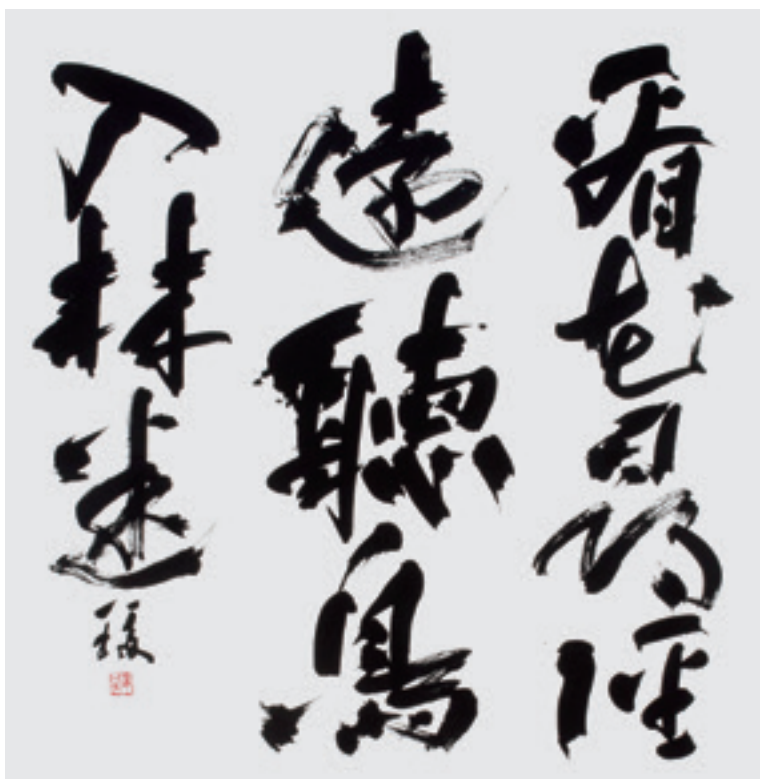 看花尋徑
遠聽鳥
入林迷